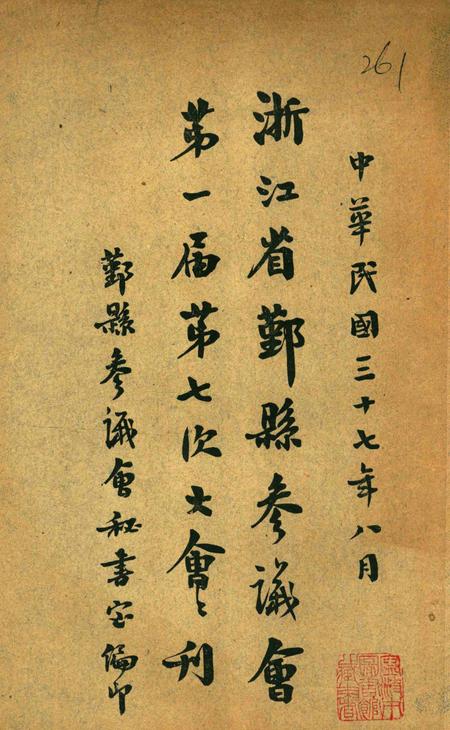 261
中華民國三十七年八月
浙江省鄞縣參議會
第一屆第七次大會會刊
鄞縣參議會秘書室編印